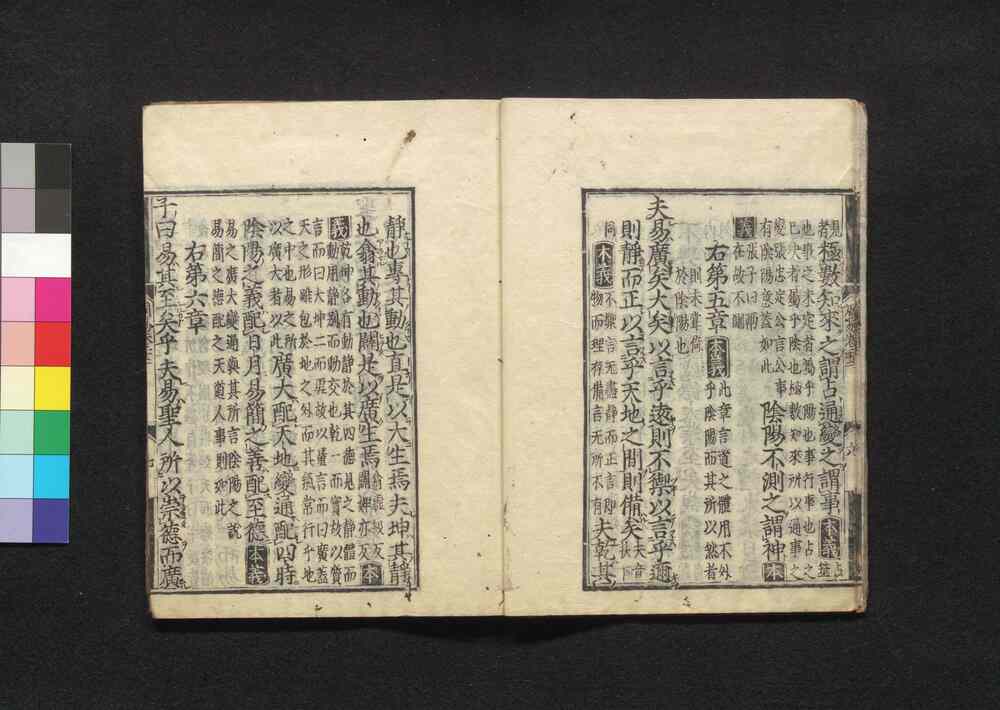 者極數知來之謂占通變之謂事本義占筮
也事之未定者屬乎陽也事行事也占之
已決者屬乎陰也極數知來所以通事之
變張忠定公言公事
有陰陽意蓋如此陰陽不測之謂神本
義張子曰兩
在故不測
右第五章本義此章言道之體用不外
乎陰陽而其所以然者
則未嘗倚
於陰陽也
夫易廣矣大矣以言乎遠則不禦以言乎邇
則靜而正以言乎天地之間則備矣夫音
扶下
同本義不禦言无盡靜而正言即
物而理存備言无所不有夫乾其
靜也專其動也直是以大生焉夫坤其靜
也翕其動也闢是以廣生焉翕虛級反
闢婢亦反本
義乾坤各有動靜於其四德見之靜體而
動用靜別而動交也乾一而實故以質
言而曰大坤二而虛故以量言而曰廣蓋
天之形雖包於地之外而其氣常行乎地
之中也易之所
以廣大者以此廣大配天地變通配四時
陰陽之義配日月易簡之善配至德本義
易之廣大變通與其所言陰陽之說
易簡之德配之天道人事則如此
右第六章
子曰易其至矣乎夫易聖人所以崇德而廣